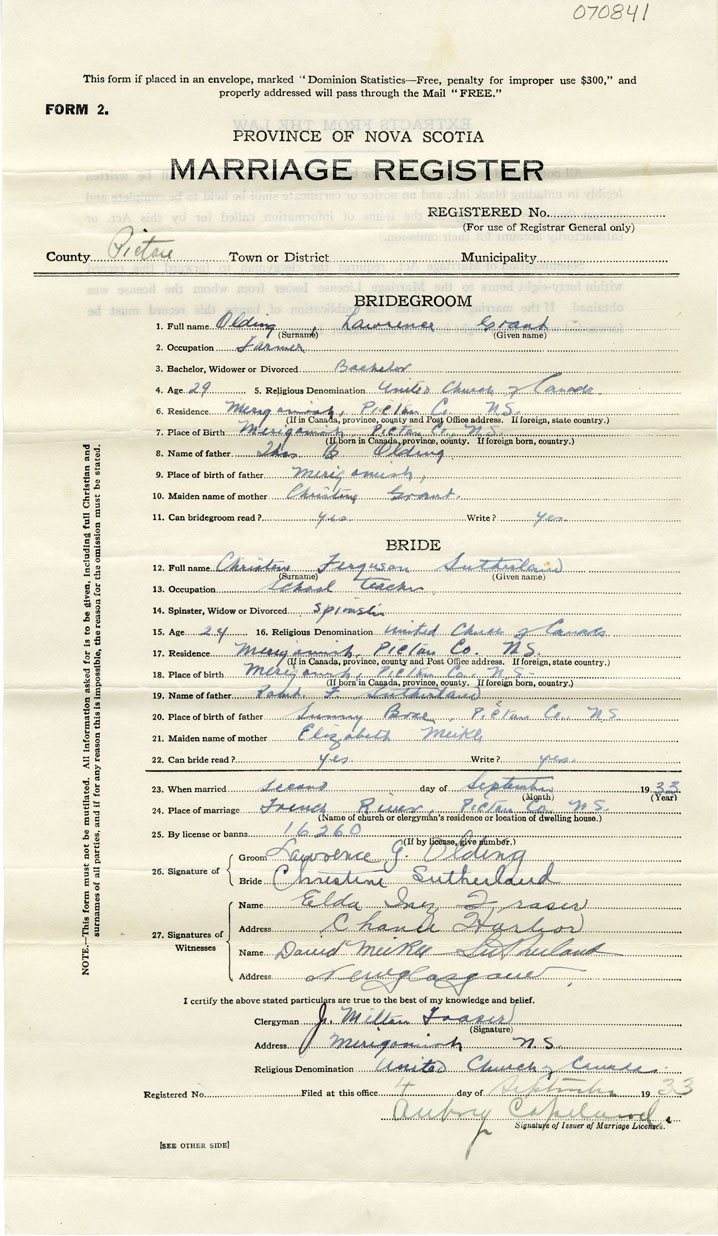 070841
This form if placed in an envelope, marked "Dominion Statistics—Free, penalty for improper use $300," and
properly addressed will pass through the Mail "FREE."
FORM 2.
PROVINCE OF NOVA SCOTIA
MARRIAGE REGISTER
REGISTERED No.
(For use of Registrar General only)
County Pictou Town or District Municipality
BRIDEGROOM
1. Full name Olding, Lawrence Grant
(Surname) (Given name)
2. Occupation Farmer
3. Bachelor, Widower or Divorced Bachelor
4. Age 29 5. Religious Denomination United Church of Canada
6. Residence Merigomish, Pictou Co. N.S.
(If in Canada, province, county and Post Office address. If foreign, state country.)
7. Place of Birth Merigomish Pictou Co. N.S.
(If born in Canada, province, county. If foreign born, country.)
8. Name of father Thos B Olding
9. Place of birth of father Merigomish,
10. Maiden name of mother Christina Grant.
11. Can bridegroom read? yes. Write? yes.
BRIDE
12. Full name Christine Ferguson Sutherland
(Surname) (Given name)
13. Occupation School teacher
14. Spinster, Widow or Divorced Spinster
15. Age 24 16. Religious Denomination United Church of Canada
17. Residence Merigomish, Pictou Co. N.S.
(If in Canada, province, county and Post Office address. If foreign, state country.)
18. Place of birth Merigomish, Pictou Co., N.S.
(If born in Canada, province, county. If foreign born, country.)
19. Name of father Robt. F. Sutherland
20. Place of birth of father Sunny Brae, Pictou Co. N.S
21. Maiden name of mother Elizabeth Meikle
22. Can bride read? yes Write? yes.
23. When married second day of September 1933
(Month) (Year)
24. Place of marriage French River, Pictou Co. N.S.
(Name of church or clergyman's residence or location of dwelling house.)
25. By license or banns 16260
(If by license, give number.)
26. Signature of Groom Lawrence G. Olding
Bride Christine Sutherland
27. Signatures of Witnesses
Name Elda Inez Fraser
Address Chance Harbor
Name David Meikle Sutherland
Address New Glasgow
I certify the above stated particulars are true to the best of my knowledge and belief.
Clergyman J. Milton Fraser
(Signature)
Address Merigomish N.S.
Religious Denomination United Church of Canada.
Registered No. Filed at this office 4 day of September 1933
Aubrey Copeland.
Signature of Issuer of Marriage Licenses.
[SEE OTHER SIDE]
NOTE.—This form must not be mutilated. All information asked for is to be given, including full Christian and
surnames of all parties, and if for any reason this is impossible, the reason for the omission must be stated.